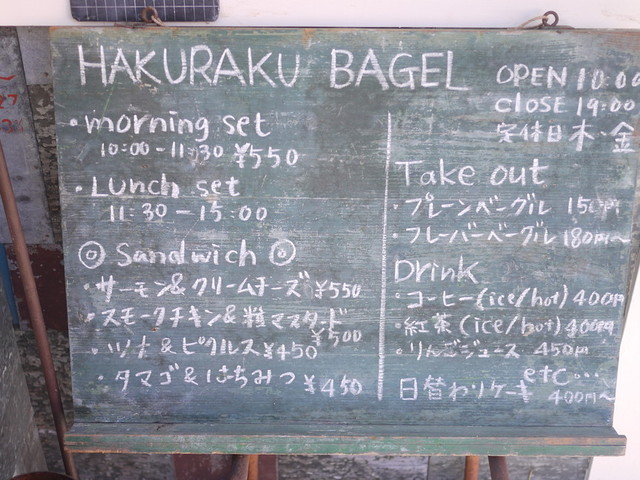 HAKURAKU BAGEL
OPEN 10:00
CLOSE 19:00
定休日 木・金
・morning set
10:00-11:30 ¥550
・Lunch set
11:30-15:00
◎ Sandwich ◎
・サーモン&クリームチーズ ¥550
・スモークチキン&粒マスタード
¥500
・ツナ&ピクルス ¥450
・タマゴ&はちみつ ¥450
Take out
・プレーンベーグル 150円
・フレーバーベーグル 180円~
Drink
・コーヒー(ice/hot) 400円
・紅茶(ice/hot) 400円
・りんごジュース 450円
etc...
日替わりケーキ
400円~